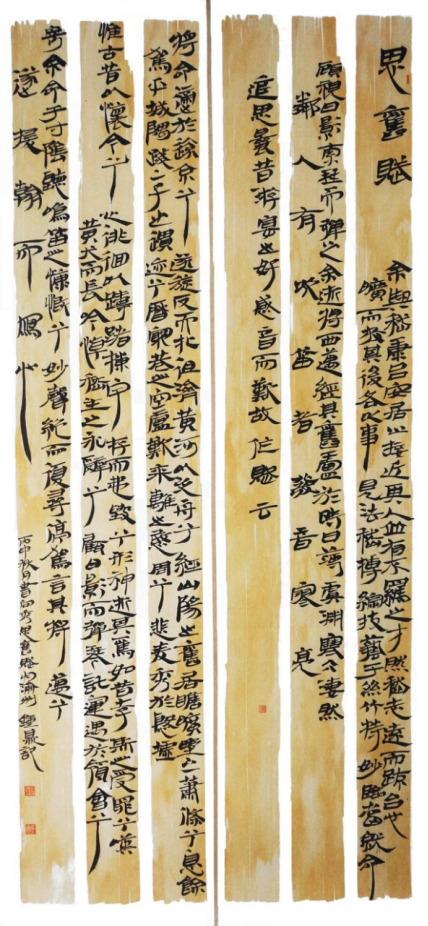 思舊賦
余與嵇康呂安居止接近其人並有不羈之才然嵇志遠而疎呂心
曠而放其後各以事見法嵇博綜技藝于絲竹特妙臨當就命
顧視日影索琴而彈之余逝將西邁經其舊廬於時日薄虞淵寒冰淒然
鄰人有吹笛者發音寥亮
追思曩昔游宴之好感音而歎故作賦云
將命適於遠京兮遂旋反而北徂濟黃河以泛舟兮經山陽之舊居瞻曠野之蕭條兮息余
駕乎城隅踐二子之遺跡兮歷窮巷之空廬歎黍離之愍周兮悲麥秀於殷墟
惟古昔以懷今兮心徘徊以躊躇棟宇存而弗毀兮形神逝其焉如昔李斯之受罪兮歎
黃犬而長吟悼嵇生之永辭兮顧日影而彈琴託運遇於領會兮
寄余命于寸陰聽鳴笛之慷慨兮妙聲絕而復尋停駕言其將邁兮
遂援翰而寫心
丙申秋月書向秀思舊賦於渝州鼎記